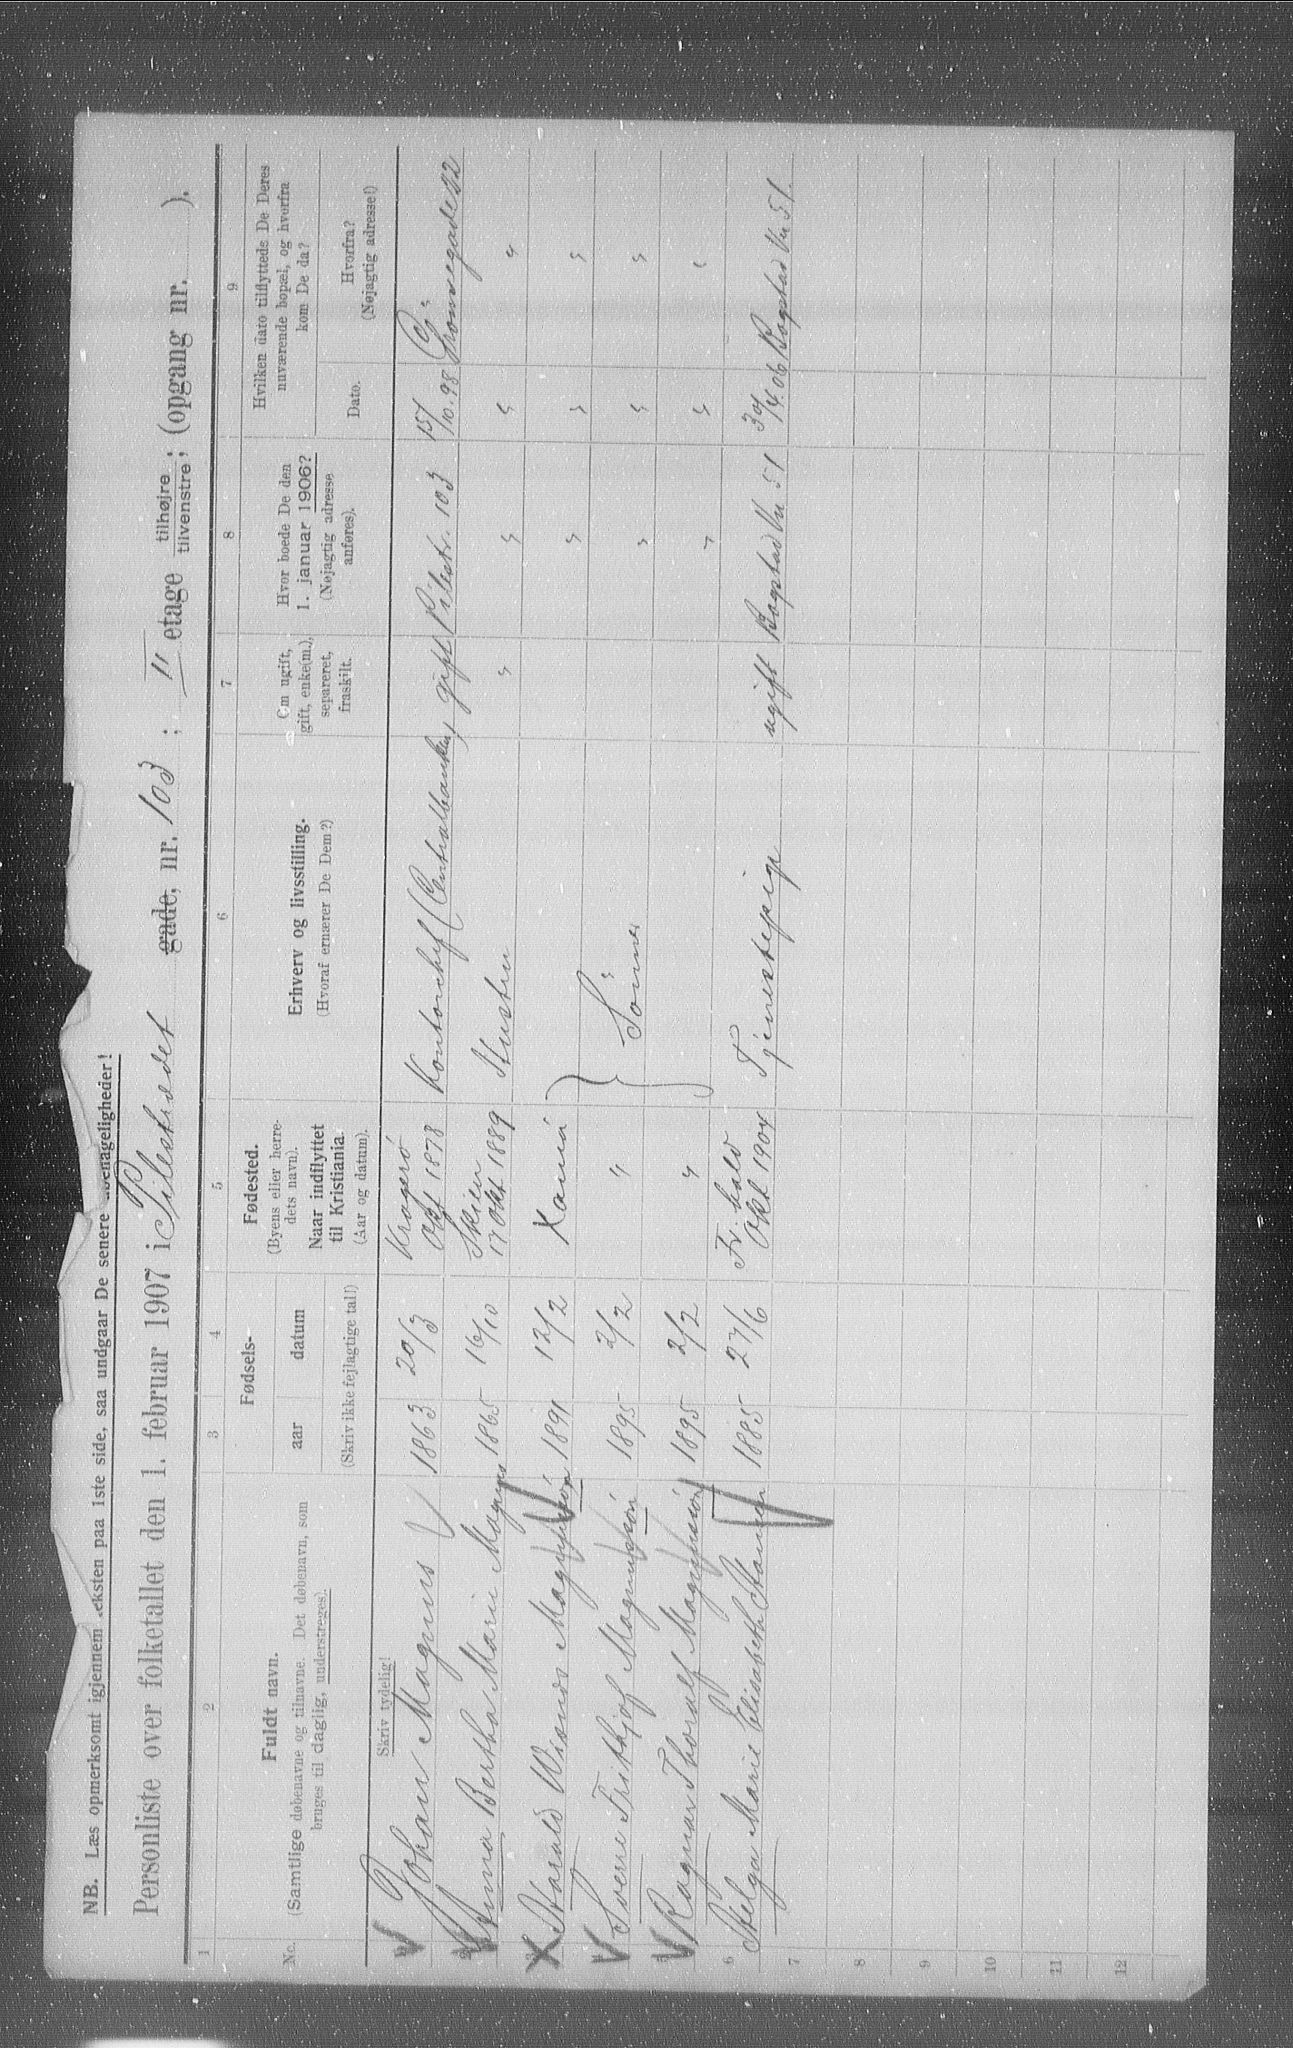 NB. Læs opmerksomt igjennem teksten paa 1ste side, saa undgaar De senere ubehageligheder!
Personliste over folketallet den 1. februar 1907 i Pilestrædet gade, nr. 103 ; II etage tilhøjre tilvenstre; (opgang nr. ).
1 2 3 4 5 6 7 8 9
No.
Fuldt navn.
(Samtlige døbenavne og tilnavne. Det døbenavn, som
bruges til daglig, understreges).
Fødsels-
aar datum
(Skriv ikke fejlagtige tal!)
Fødested.
(Byens eller herre-
dets navn).
Naar indflyttet
til Kristiania.
(Aar og datum).
Erhverv og livsstilling.
(Hvoraf ernærer De Dem?)
Om ugift,
gift, enke(m.),
separeret,
fraskilt.
Hvor boede De den
1. januar 1906?
(Nøjagtig adresse
anføres).
Hvilken dato tilflyttede De Deres
nuværende bopæl, og hvorfra
kom De da?
Dato.
Hvorfra?
(Nøjagtig adresse!)
Skriv tydelig!
Johan Magnus 1863 20/3 Kragerö Okt 1878 Kontorchef (Centralbanken) gift Pilestr. 103 15/10.98 Grönnegade 22
Anna Bertha Marie Magnus 1865 16/10 Skien 17 Okt 1889 Hustru " " " "
Harald Magnussön 1891 12/2 Kania " " "
Sverre Frithjof Magnussön 1895 2/2 " Sönner " " "
Ragnar Thoralf Magnussön 1895 2/2 " " " "
6 Helga Marie Elisabeth Hansen 1885 27/6 Fr.hald Okt 1904 Tjenestepige ugift Bogstadvn 51 30/4.06 Bogstadvn 51.
7
8
9
10
11
12